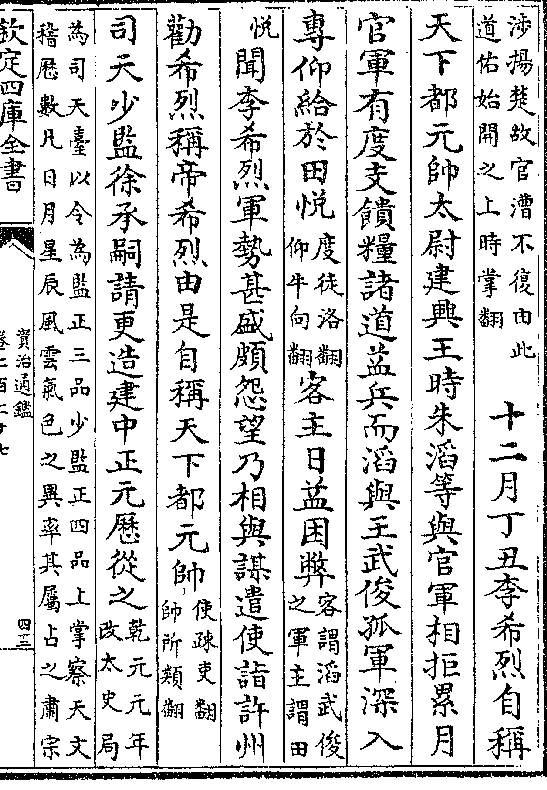 涉揚楚故官漕不復由此
道佑始開之上時掌翻
十二月丁丑李希烈自稱
天下都元帥太尉建興王時朱滔等與官軍相拒累月
官軍有度支饋糧諸道益兵而滔與王武俊孤軍深入
專仰給於田悅
度徒洛翻
仰牛向翻
客主日益困弊
客謂滔武俊
之軍主謂田
悅
聞李希烈軍勢甚盛頗怨望乃相與謀遣使詣許州
勸希烈稱帝希烈由是自稱天下都元帥
使疎吏翻
帥所類翻
司天少監徐承嗣請更造建中正元歷從之
乾元元年
改太史局
為司天臺以令為監正三品少監正四品上掌察天文
稽歷數凡日月星辰風雲氣色之異率其屬占之肅宗
欽定四庫全書
資治通鑑
卷二百二十七
四三